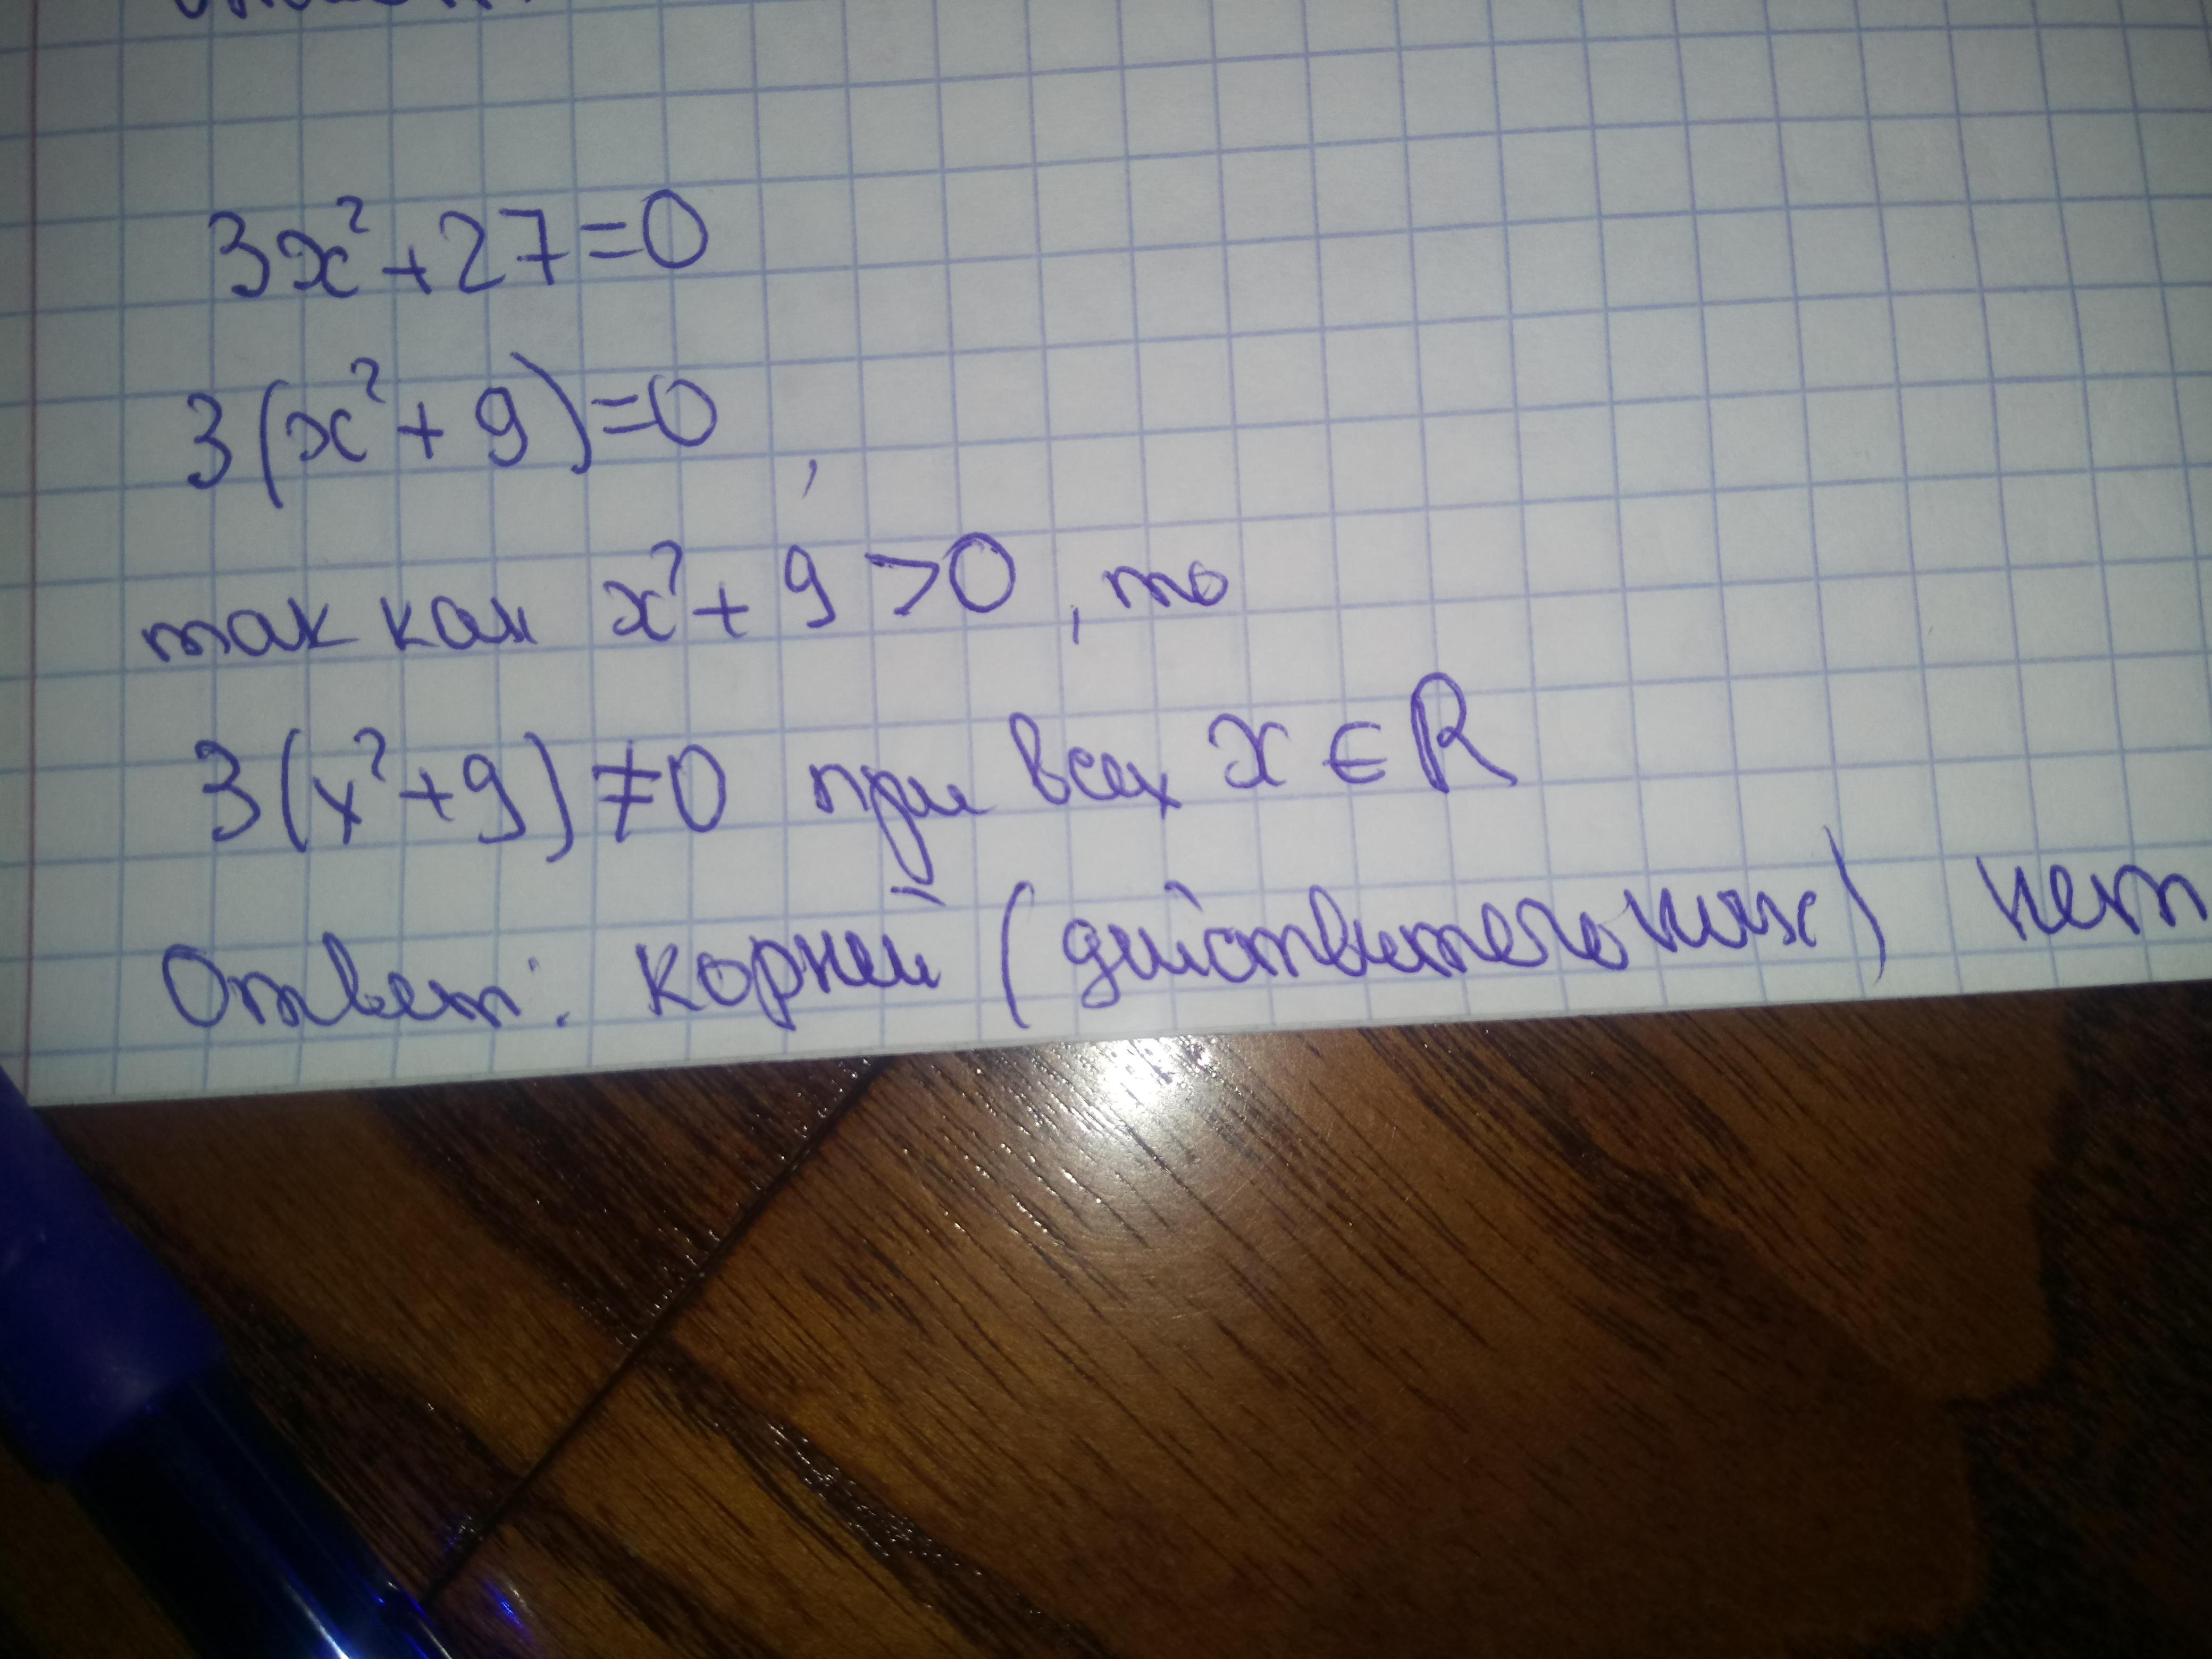 3x²+27=0
3(x²+9)=0
,
так как x²+9>0, то
3(x²+9)≠0 при всех x∈R
Ответ: корней (действительных) нет